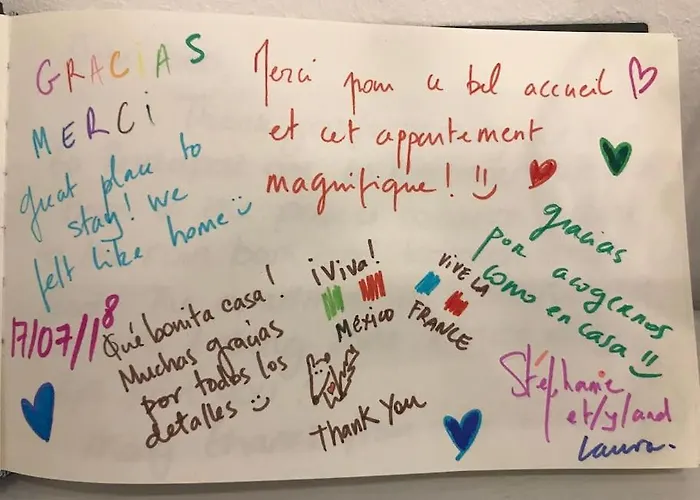 GRACIAS
MERCI
great place to
stay! we
felt like home
Merci pour ce bel accueil
et cet appartement
magnifique!
gracias
por acogernos
como en casa
17/07/18
Qué bonita casa!
Muchas gracias
por todos los
detalles
¡Viva!
MÉXICO
VIVE LA
FRANCE
Thank You
Stéphanie
et/y/and
Laura.